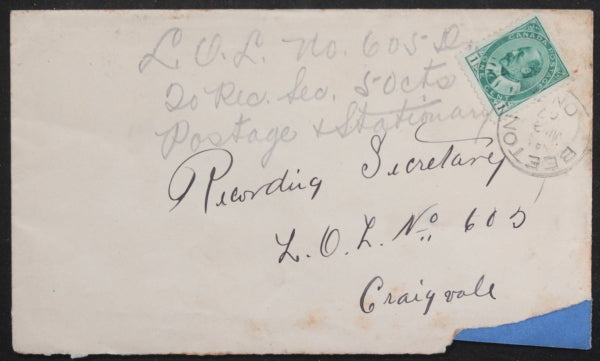 L. O. L. No. 605 Dr.
To Rec. Sec. 50cts
Postage & Stationary
CANADA POSTAGE
BEETON
ONT
Recording Secretary
L. O. L. No 605
Craigvale